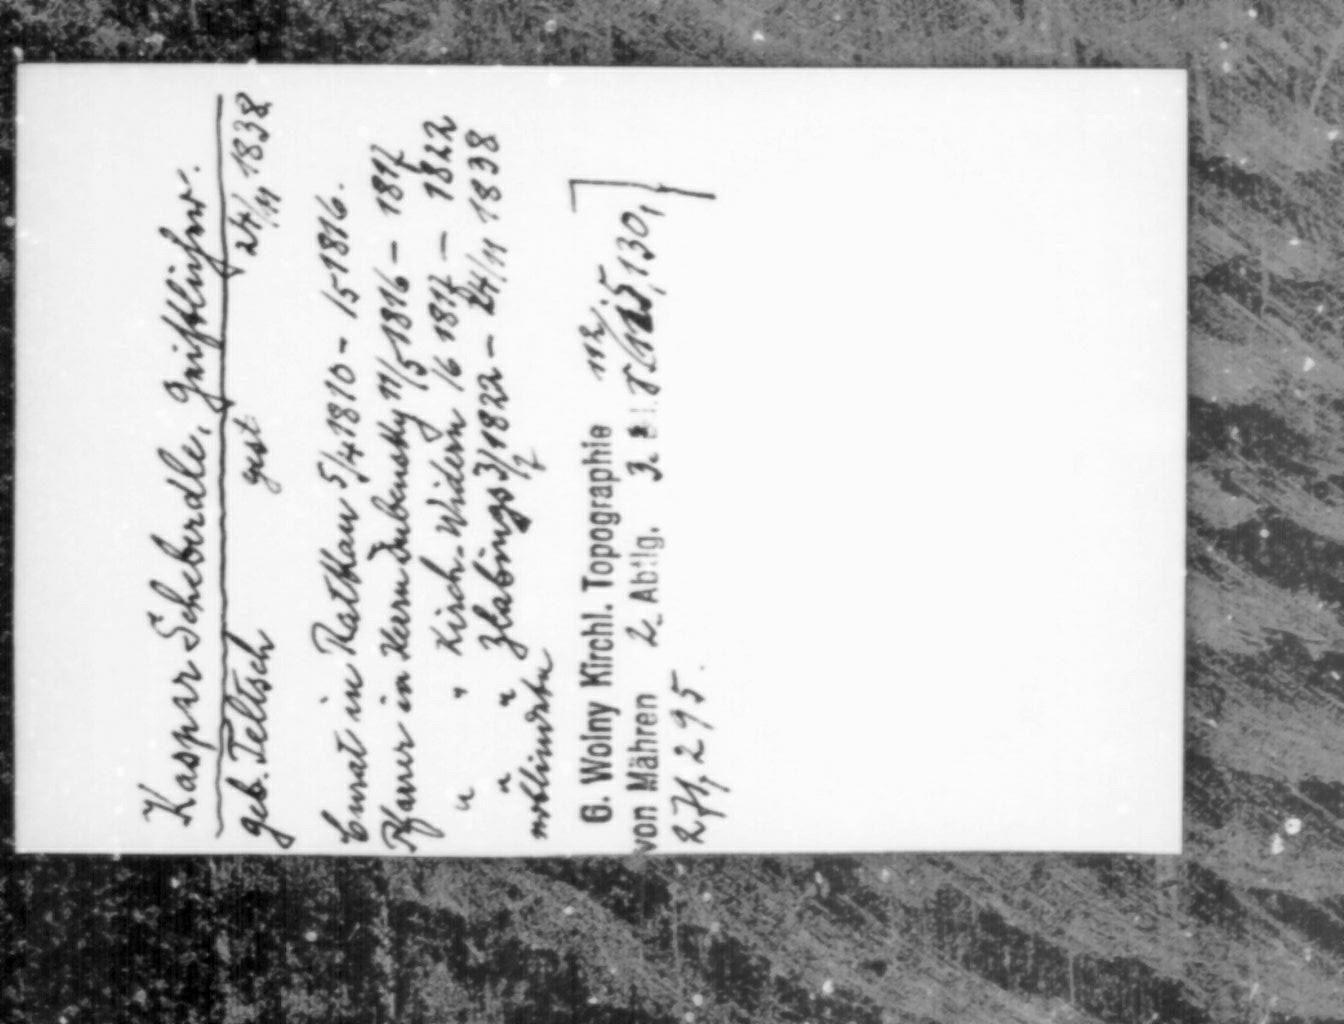 Kaspar Scheberdle, Geistlicher.
geb. Teltsch gest. 24/11 1838
Curat in Ratkau 5/4 1810 - 15 1816.
Pfarrer in Herrn Dubensky 11/5 1816 - 1817
" " Kirch. Widern 16 1817 - 1822
" " Zlabings 3/7 1822 - 24/11 1838
G. Wolny Kirchl. Topographie 112.
von Mähren 2. Abtlg. 3. 130,
271, 295.